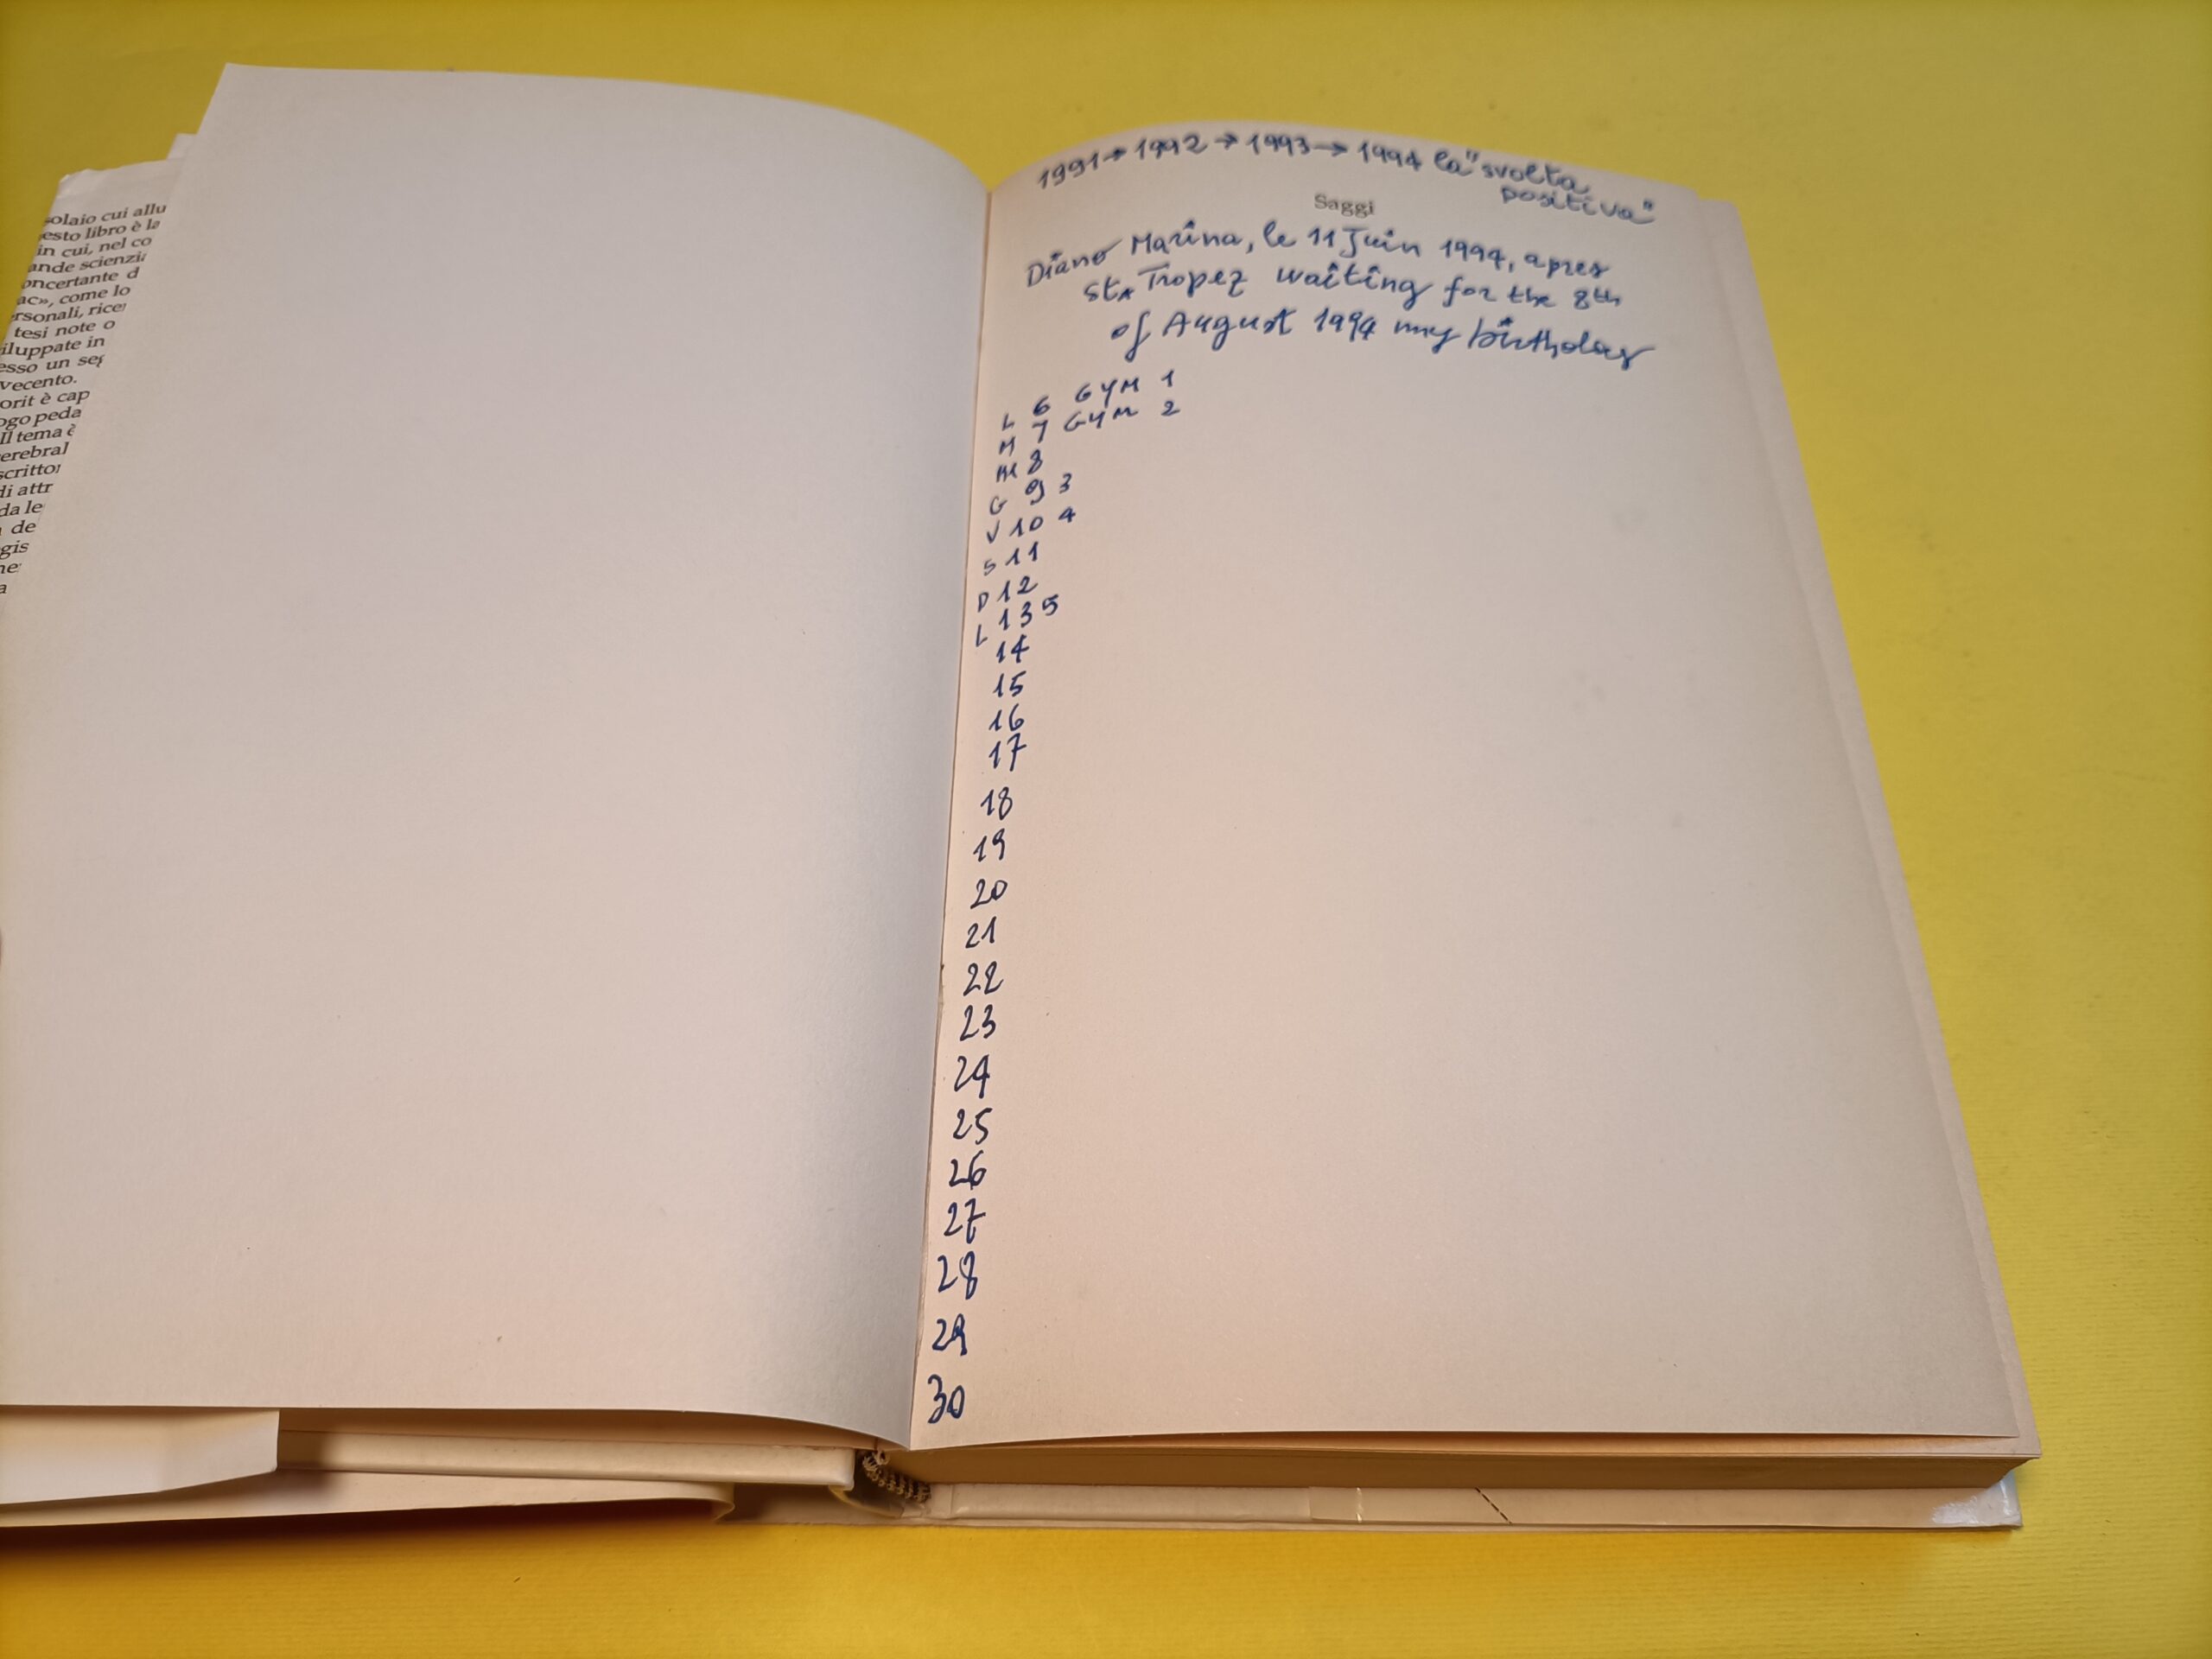 solaio cui allu
esto libro è la
in cui, nel co
ande scienzi
oncertante d
ac», come lo
rsonali, rice
tesi note o
iluppate in
esso un seg
vecento.
orit è cap
ogo peda
Il tema è
erebral
scritto
di attr
da le
de
gis
ne
a
1991 → 1992 → 1993 → 1994 la "svolta
positiva"
Saggi
Diano Marina, le 11 Juin 1994, apres
St. Tropez waiting for the 8th
of August 1994 my birthday
L 6 GYM 1
M 7 GYM 2
M 8
G 9 3
V 10 4
S 11
D 12
L 13 5
14
15
16
17
18
19
20
21
22
23
24
25
26
27
28
29
30